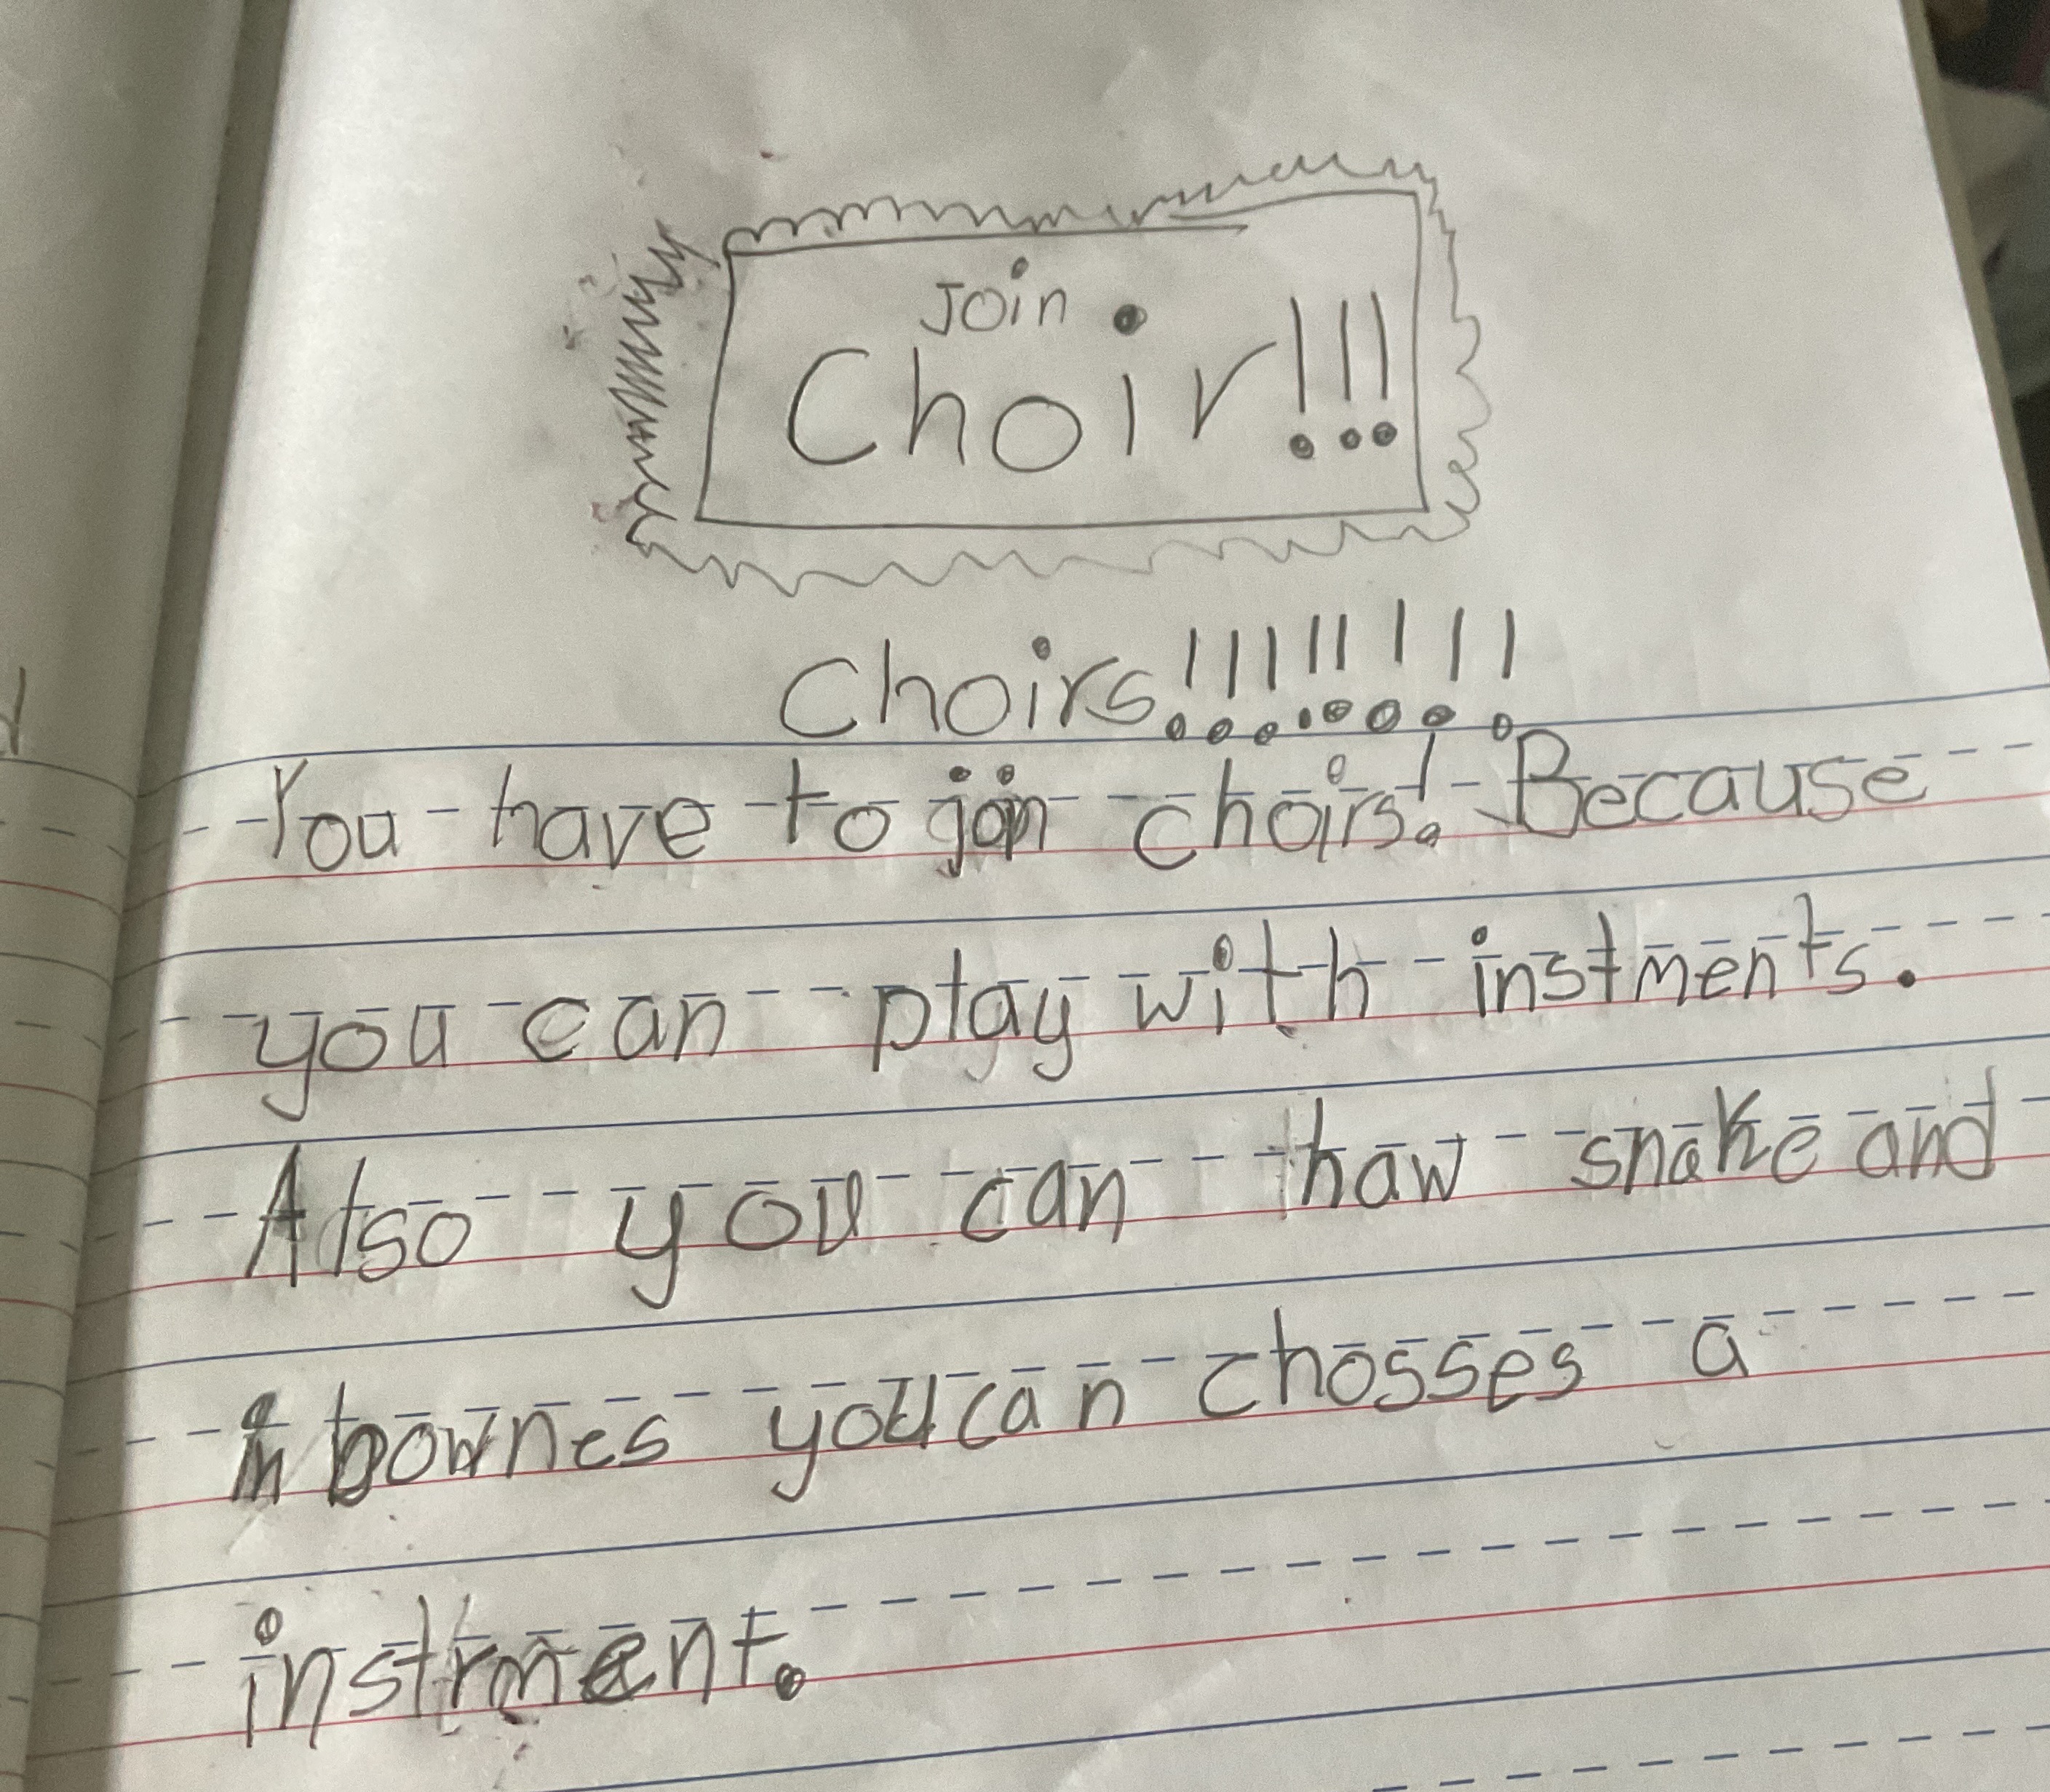 Join
Choir!!!
Choirs!!!!!!!!
You have to join choirs! Because
you can play with instments.
Also you can haw snake and
in bownes you can chosses a
instrment.